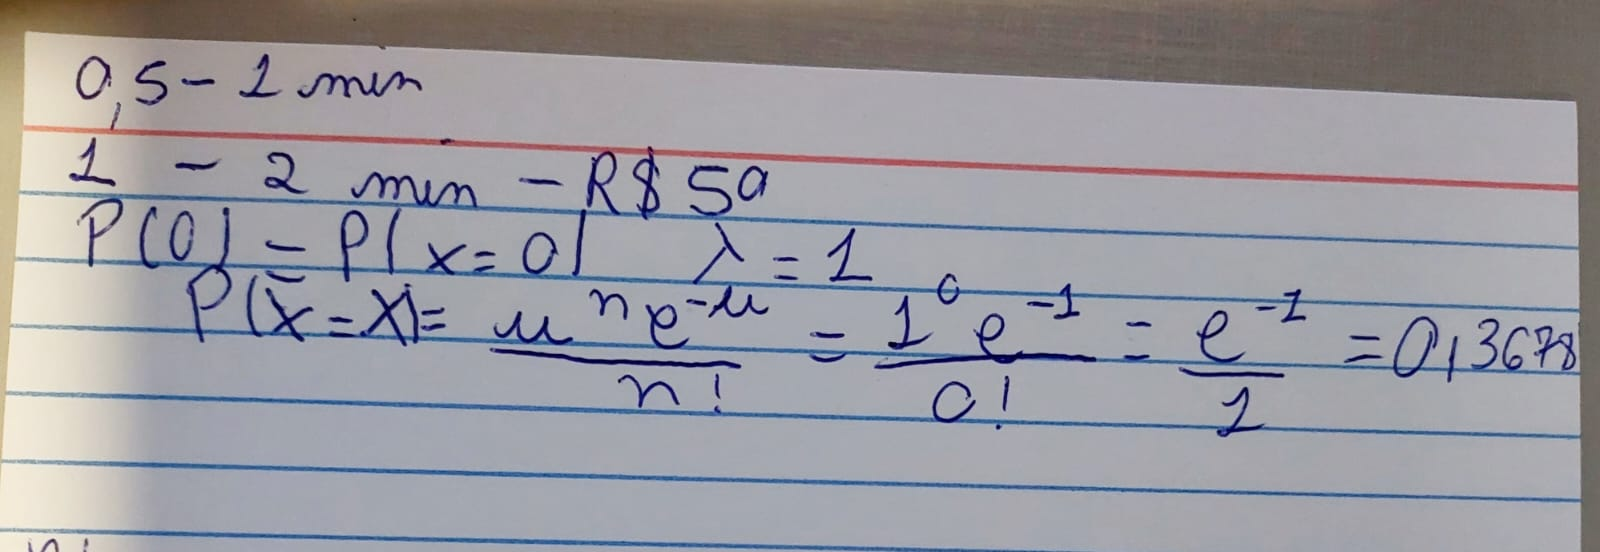 0,5 - 1 min
1 - 2 min - R$ 50
P(0) = P(x=0) λ = 1
P(X=X) = μⁿe⁻ᵘ/n! = 1⁰e⁻¹/0! = e⁻¹/1 = 0,3678